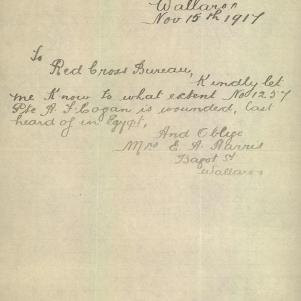 Wallaroo
Nov 15th 1917
To
Red Cross Bureau,
Kindly let
me Know to what extent No 1257
Pte A. F. Cogan is wounded, last
heard of in Egypt,
And Oblige
Mrs E. A. Harris
Bagot St
Wallaroo